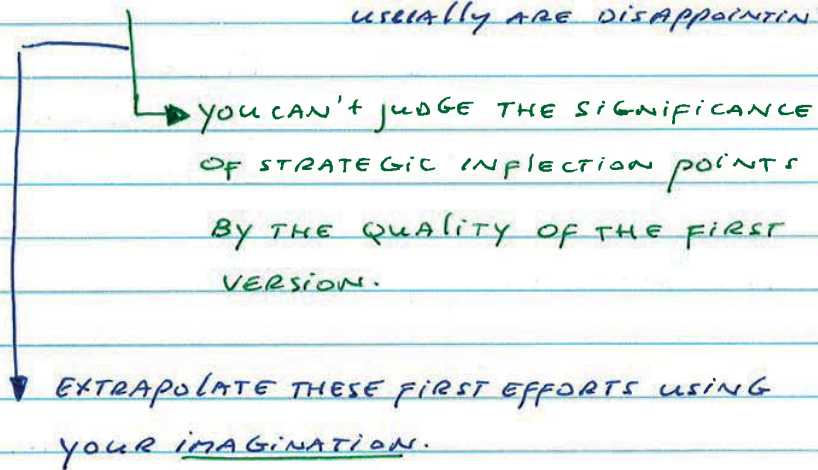 USUALLY ARE DISAPPOINTIN
YOU CAN't JUDGE THE SIGNIFICANCE
OF STRATEGIC INFLECTION POINTS
BY THE QUALITY OF THE FIRST
VERSION.
EXTRAPOLATE THESE FIRST EFFORTS USING
YOUR IMAGINATION.